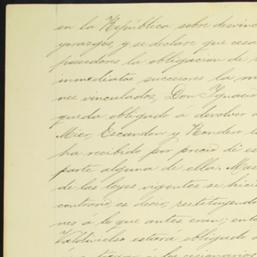 en la República sobre desvincu
yorazgos, y se declare que cesa
poseedores la obligacion de
inmediatos sucesores la m
nes vinculados, Don Ygnacio
queda obligado a devolver a
Mier, Escandon y
ha recibido por precio de es
parte alguna de ella. Mas
de las leyes vigentes se hicie
contrario, es decir, restituyendo
nes á lo que antes eran; ent
Valdivielso estará obligado a